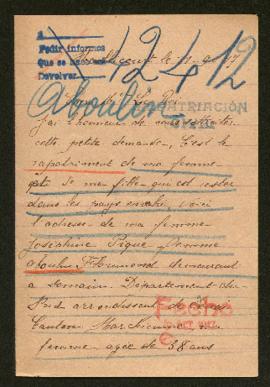 A
Pedir informes
Que se
Devolver
12412
Aboulin
REPATRIACIÓN
J'ai l'honneur de vous
cette petite demande, C'est le
rapatriement de ma femme
et de ma fille qui est restée
dans les pays envahis, voici
l'adresse de ma femme
Joséphine Pique femme
Aboulin Floumond demeurant
a Somain Département du
Nord arrondissement de
Canton Marchiennes
femme agée de 38 ans
Fecho